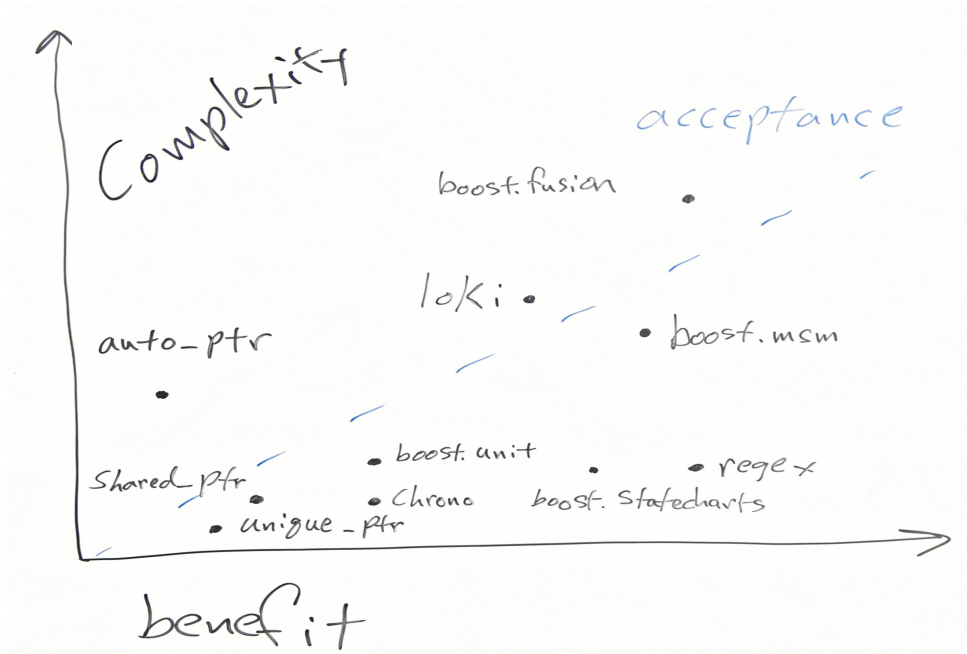 Complexity
acceptance
boost.fusion
loki
auto_ptr
boost.msm
boost.unit
regex
Shared_ptr
Chrono
boost.Statecharts
unique_ptr
benefit